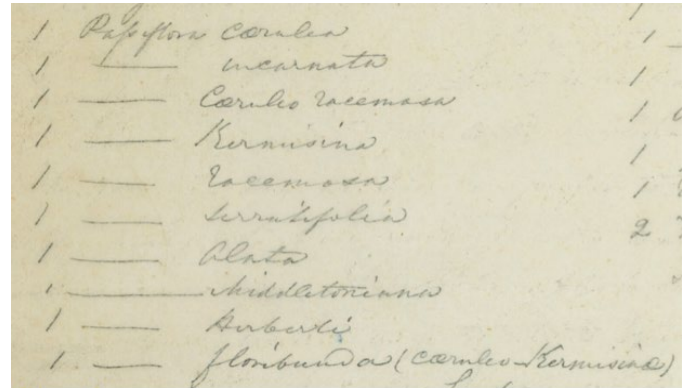 1 Passiflora cœrulea 1
1 —— incarnata 1
1 —— Cœruleo racemosa 1
1 —— Kermisina 1
1 —— racemosa 1
1 —— serratifolia 1
1 —— Alata 2
1 —— Middletoniana
1 —— Herberti
1 —— floribunda (cœruleo-Kermisina)